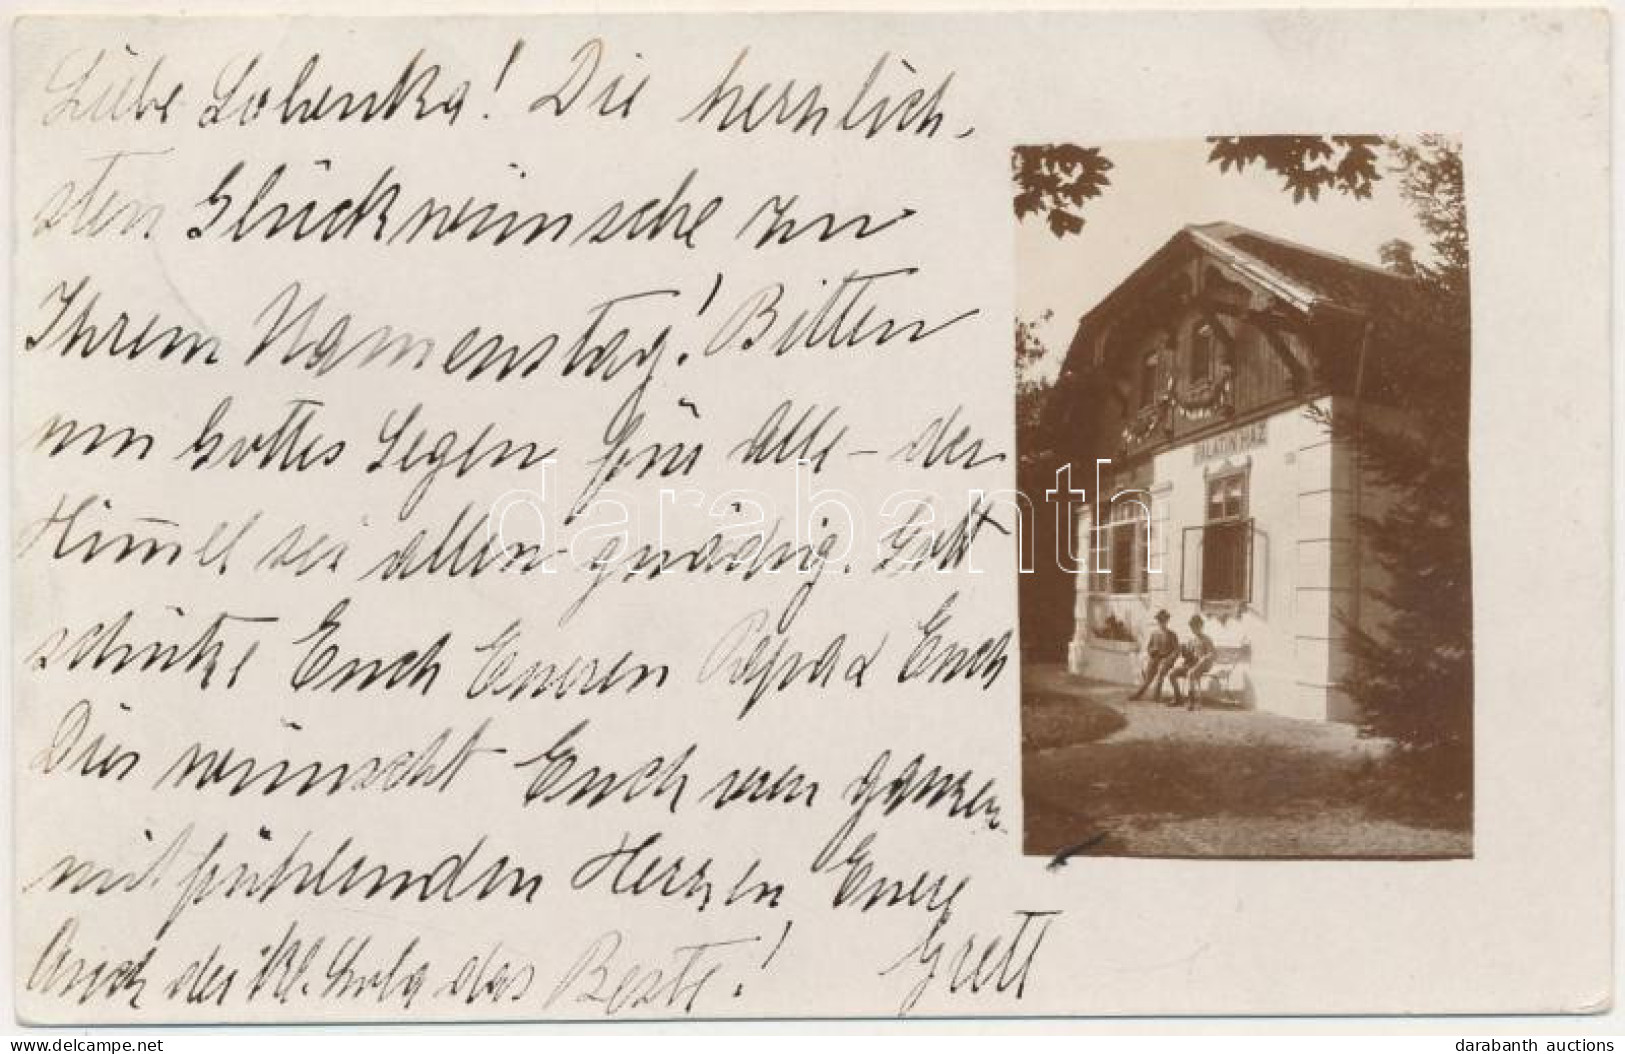 Liebe Lolenka! Die herzlich-
sten Glückwünsche zu
Ihrem Namenstag! Bitten
um Gottes Segen für Alle – der
Himmel sei allen gnädig. Gott
schütze Euch Eueren Papa & Euch
Dies wünscht Euch vom ganzen
mitfühlenden Herzen Euere
Auch der kl. das Beste! Grett
PALATIN HÁZ
darabanth
© www.darabanth.com
darabanth auctions